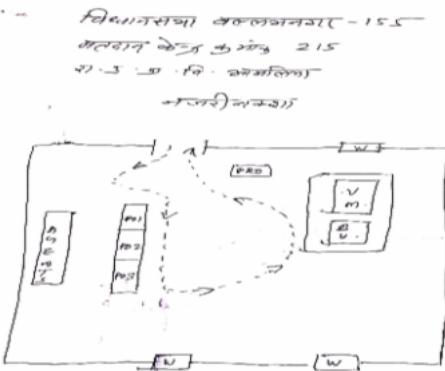 विधानसभा वल्लभनगर - 155
मतदान केन्द्र क्रमांक 215
रा. उ. प्रा. वि.
नजरी नक्शा
W
PRO
V
M
AGENTS
PO1
PO2
PO3
W
W